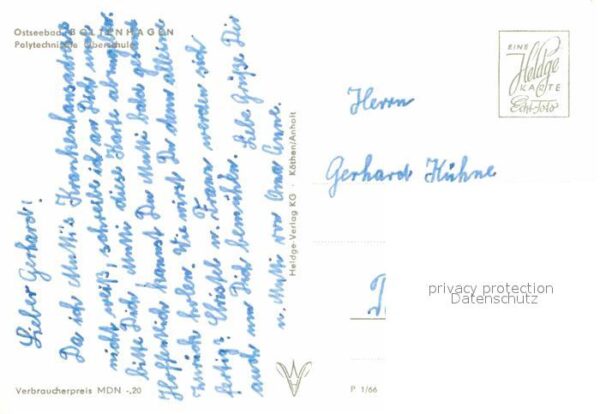 Ostseebad BOLTENHAGEN
Polytechnische Oberschule
Lieber Gerhard!
Da ich Mutti's Krankenhausadresse
nicht weiß, schreibe ich an Dich und
bitte Dich Mutti diese Karte abzugeben.
Hoffentlich kannst Du Mutti bald gesund
zurück holen. Wie wirst Du denn alleine
fertig? Christel u. Franz werden sich
auch um Dich bemühen. Liebe Grüße Dir
u. Mutti von Oma Anne.
Heldge-Verlag KG · Köthen/Anhalt
EINE
Heldge
KARTE
Echt-Foto
Herrn
Gerhard Kühne
privacy protection
Datenschutz
Verbraucherpreis MDN -,20
P 1/66